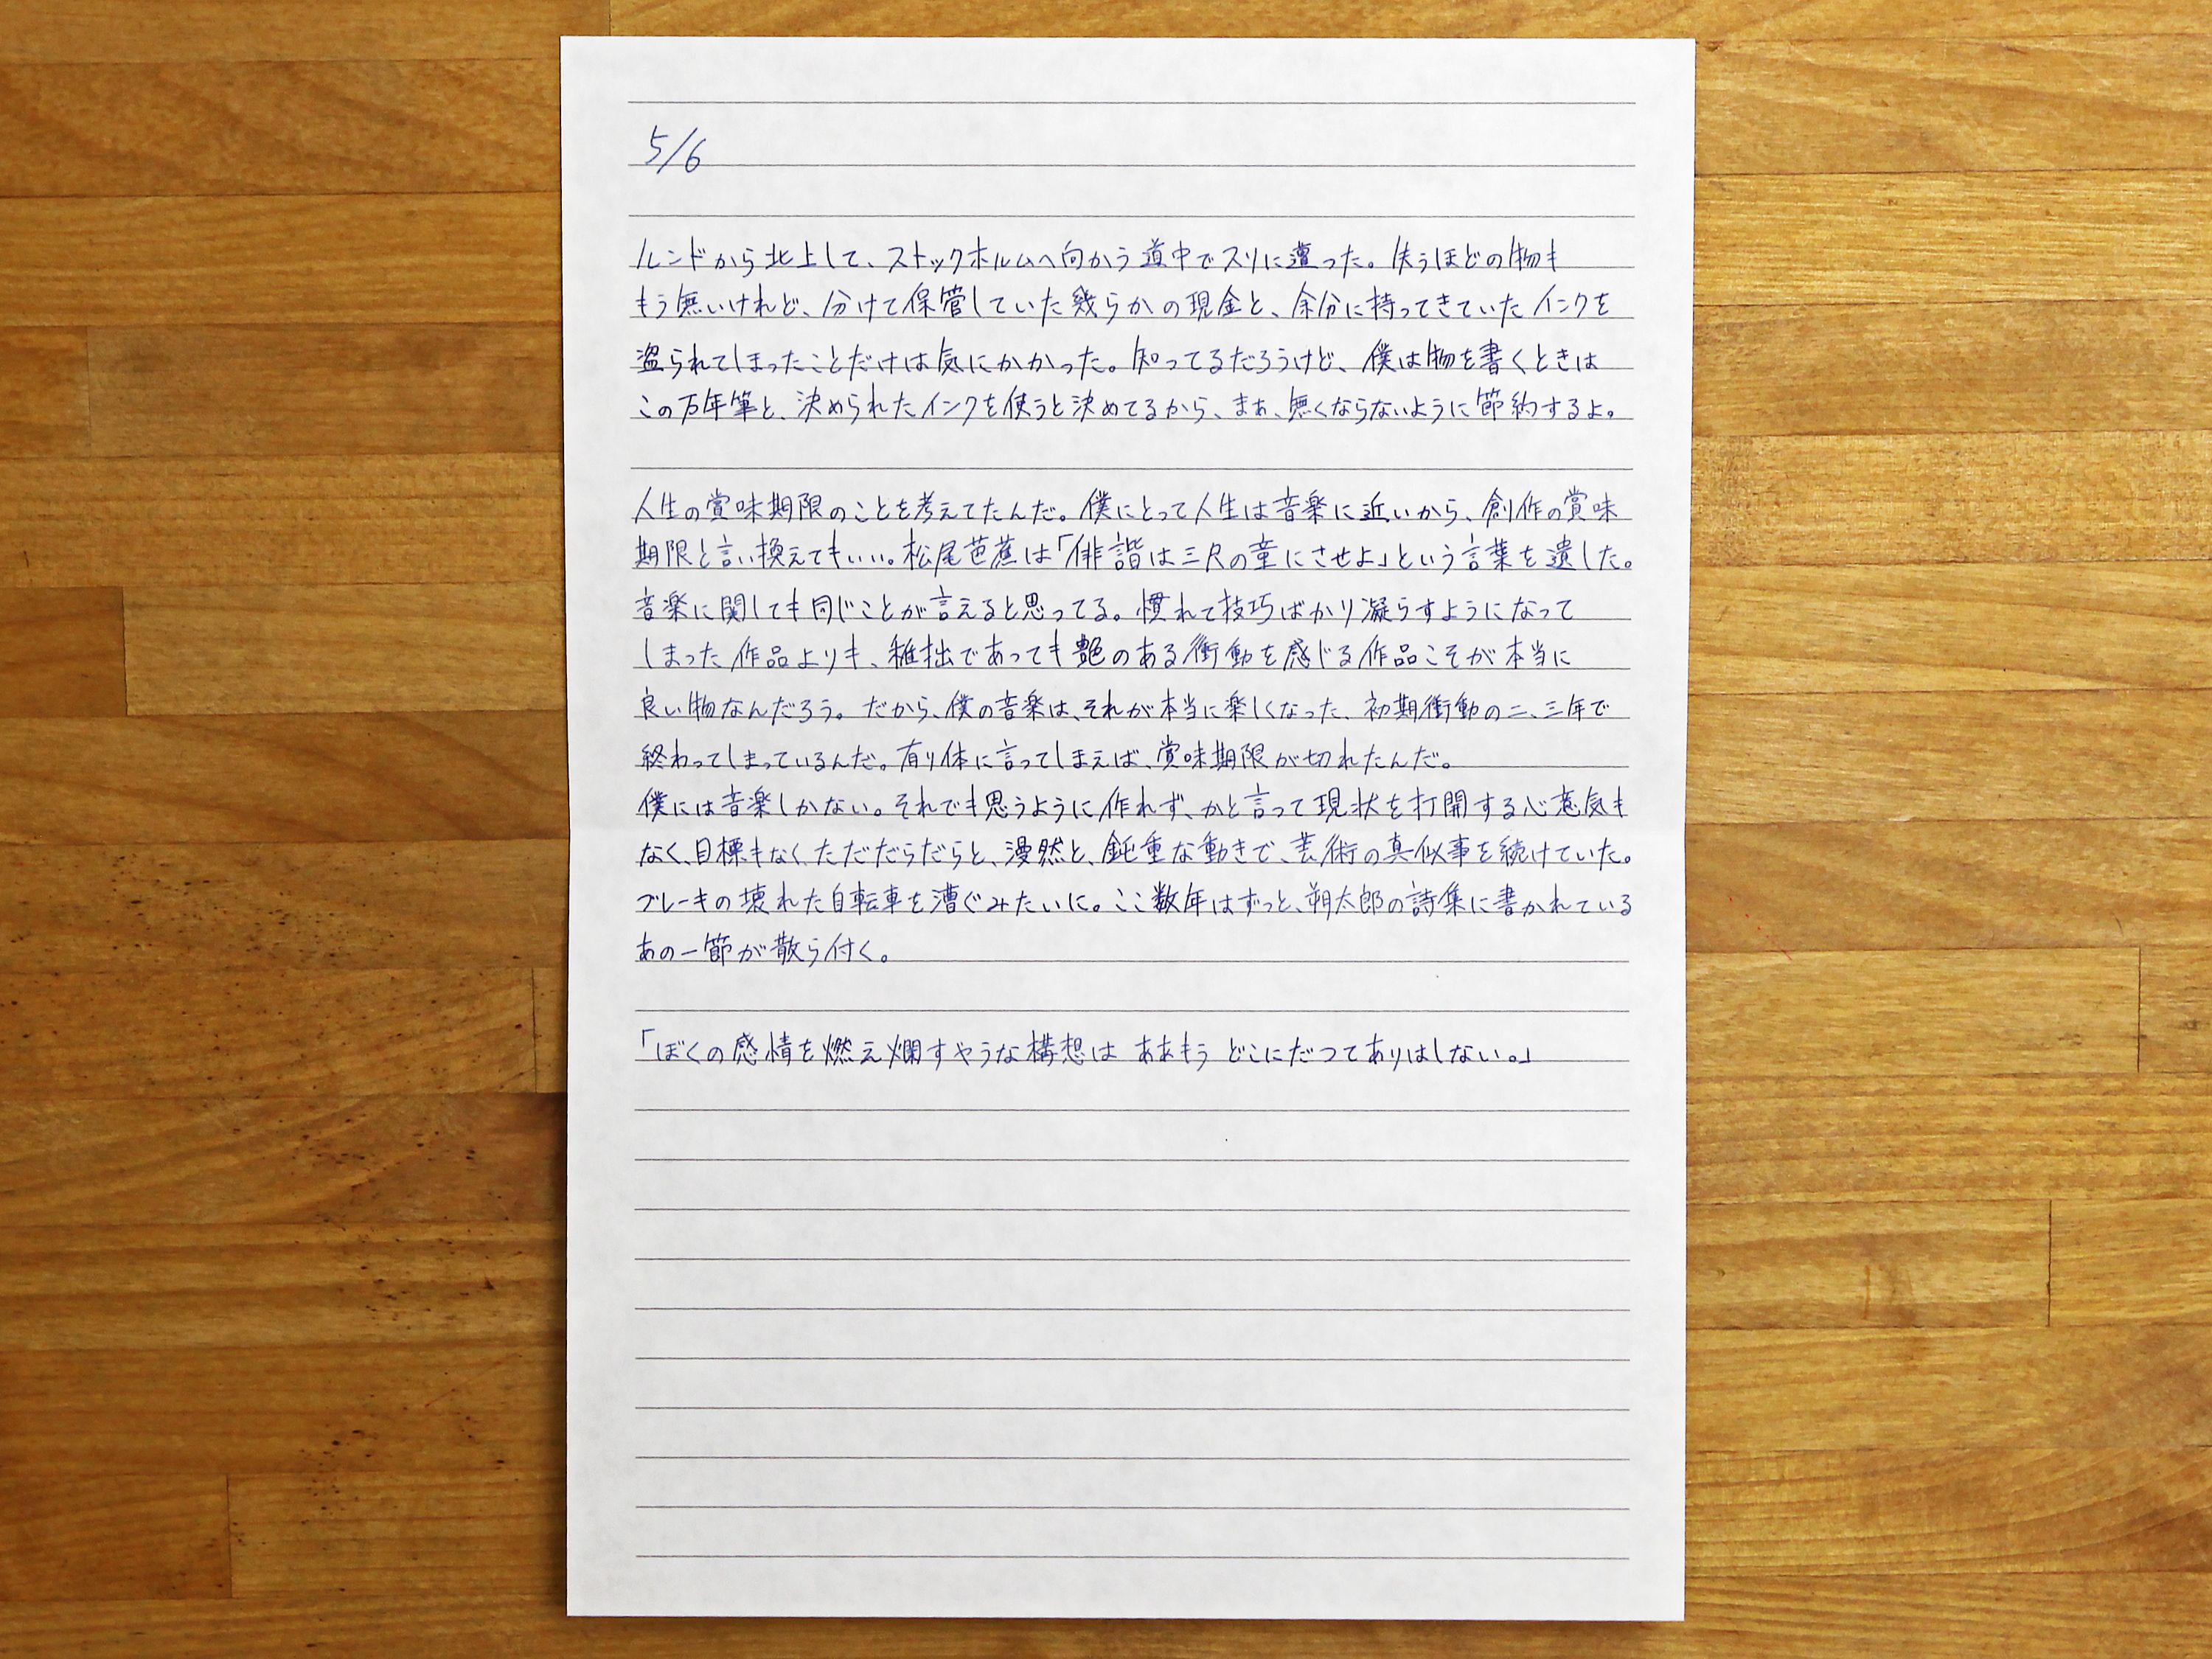 5/6
ルンドから北上して、ストックホルムへ向かう道中でスリに遭った。失うほどの物も
もう無いけれど、分けて保管していた幾らかの現金と、余分に持ってきていたインクを
盗られてしまったことだけは気にかかった。知ってるだろうけど、僕は物を書くときは
この万年筆と、決められたインクを使うと決めてるから、まあ、無くならないように節約するよ。
人生の賞味期限のことを考えてたんだ。僕にとって人生は音楽に近いから、創作の賞味
期限と言い換えてもいい。松尾芭蕉は「俳諧は三尺の童にさせよ」という言葉を遺した。
音楽に関しても同じことが言えると思ってる。慣れて技巧ばかり凝らすようになって
しまった作品よりも、稚拙であっても艶のある衝動を感じる作品こそが本当に
良い物なんだろう。だから、僕の音楽は、それが本当に楽しくなった、初期衝動の二、三年で
終わってしまっているんだ。有り体に言ってしまえば、賞味期限が切れたんだ。
僕には音楽しかない。それでも思うように作れず、かと言って現状を打開する心意気も
なく、目標もなく、ただだらだらと、漫然と、鈍重な動きで、芸術の真似事を続けていた。
ブレーキの壊れた自転車を漕ぐみたいに。ここ数年はずっと、朔太郎の詩集に書かれている
あの一節が散ら付く。
「ぼくの感情を燃え爛すやうな構想は ああもう どこにだつてありはしない。」